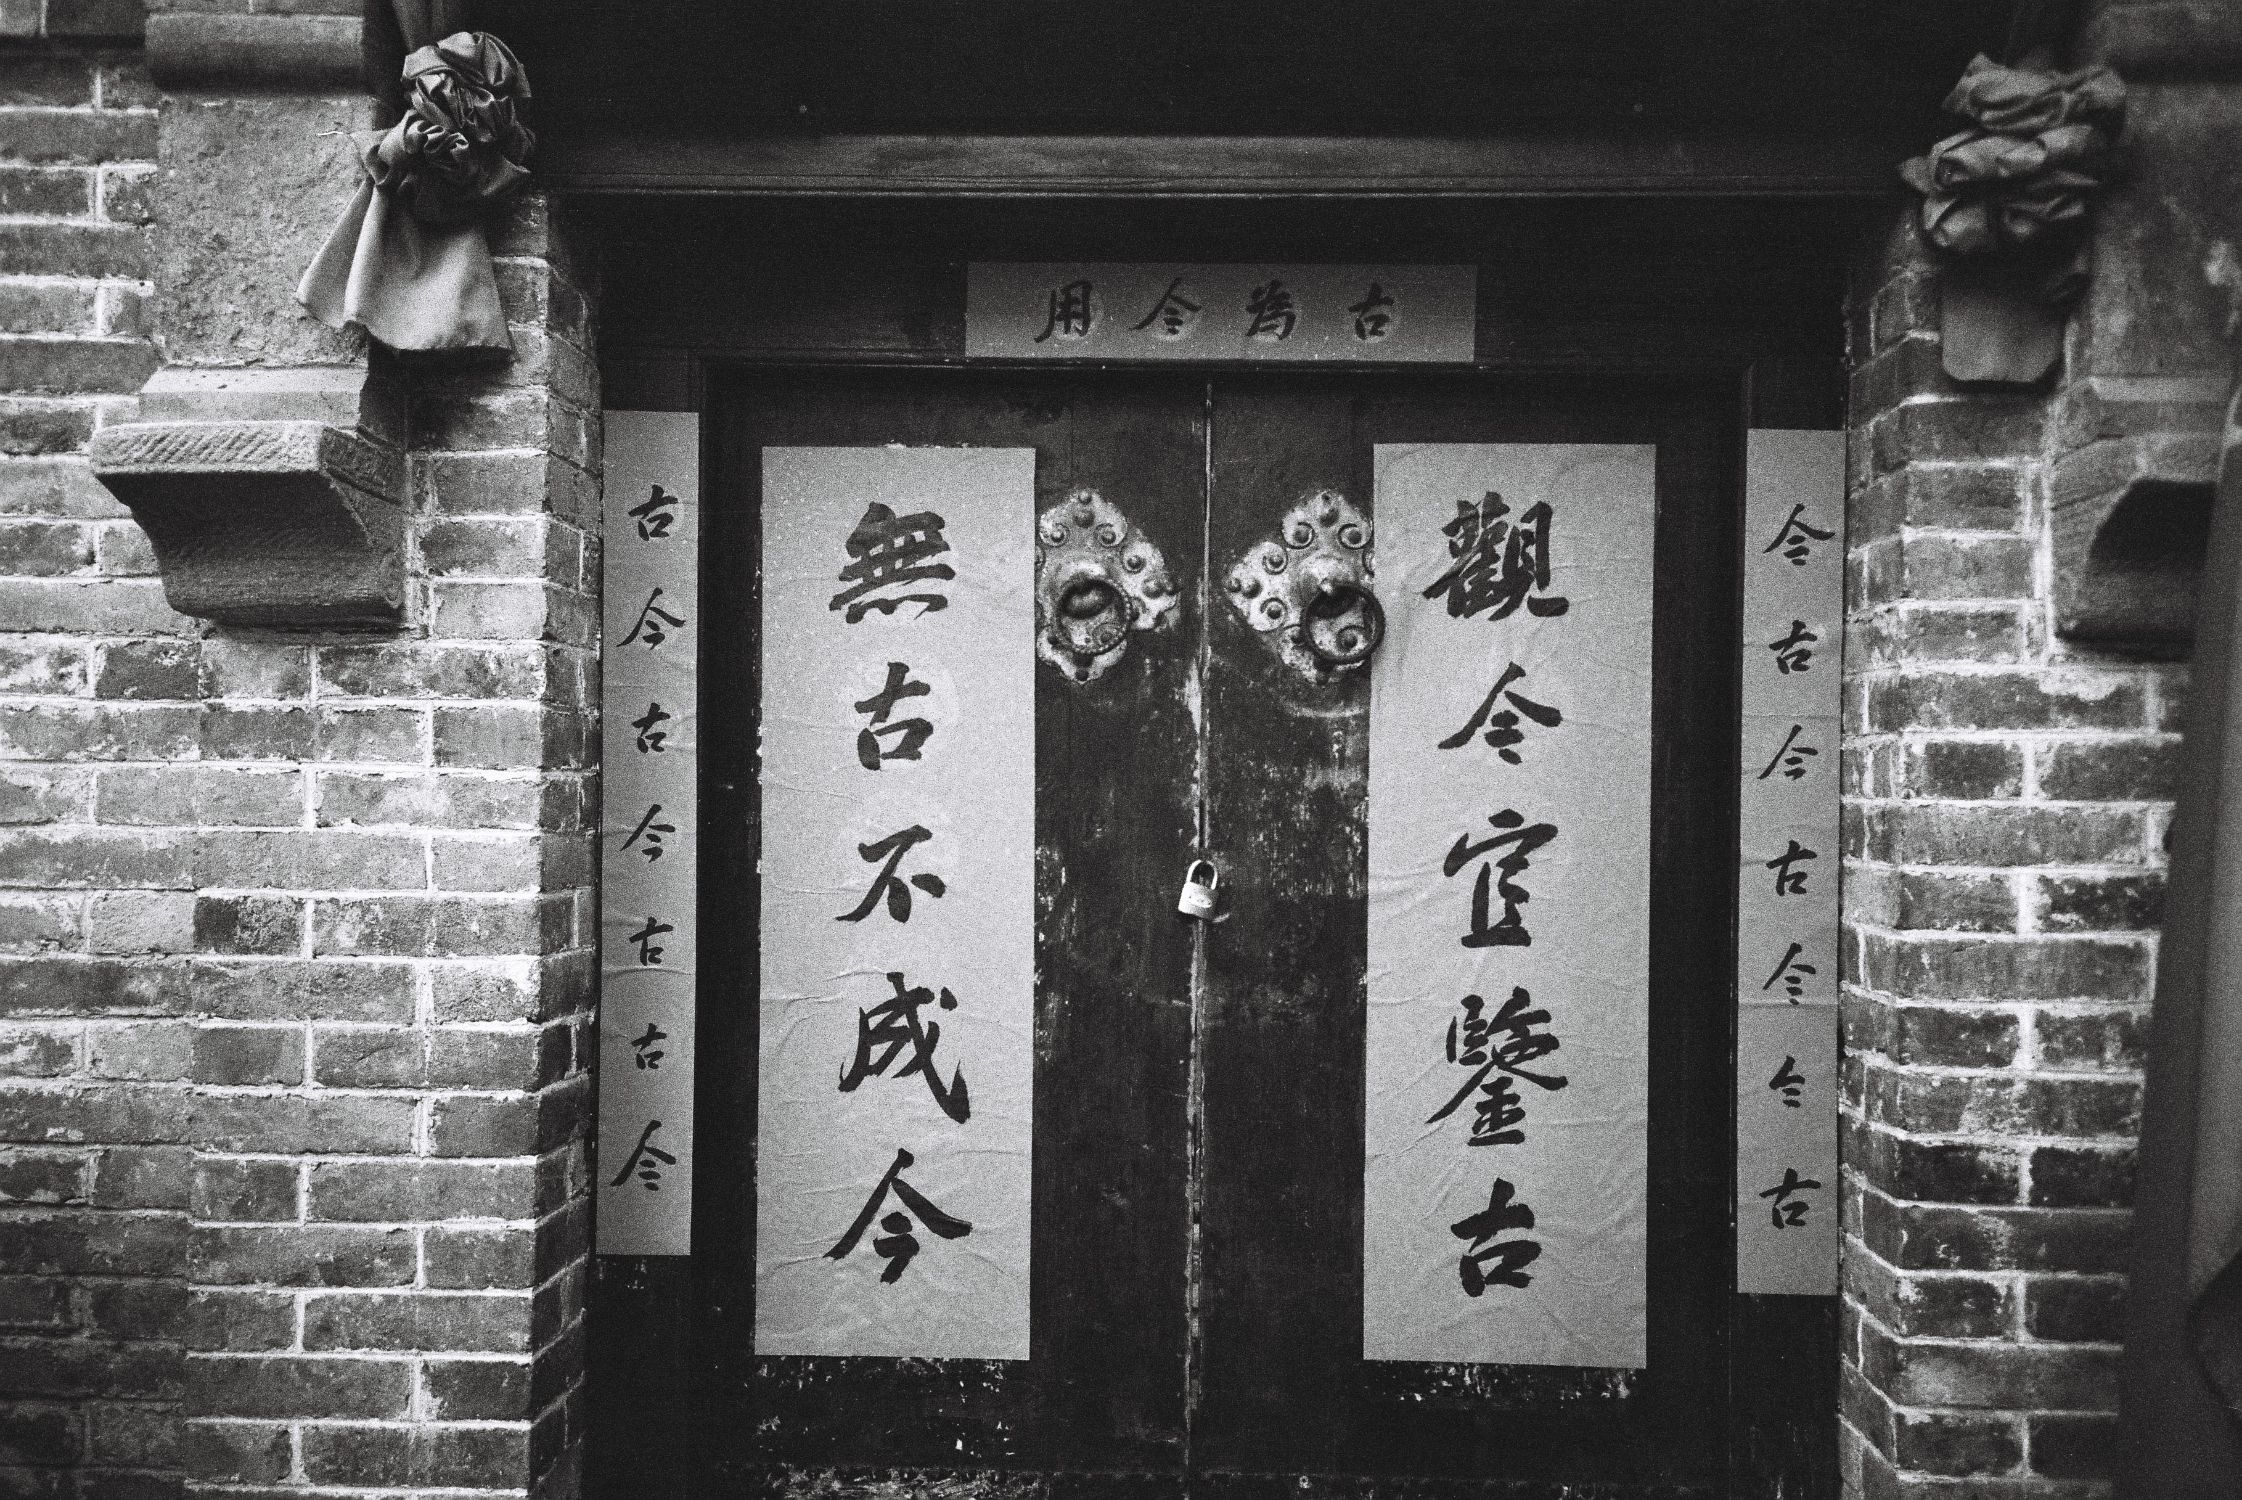 古為今用
今古今古今今古
觀今宜鑒古
無古不成今
古今古今古古今